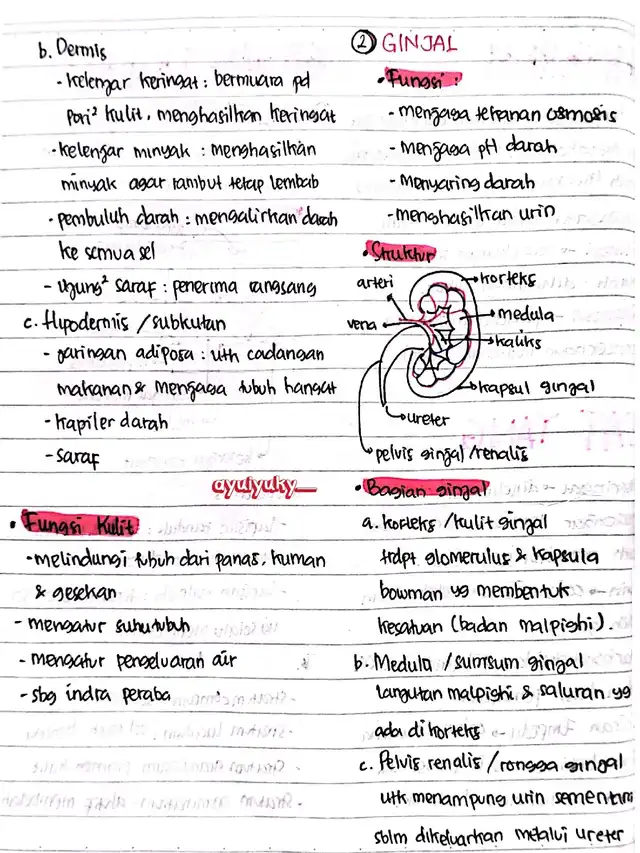 b. Dermis
- Kelenjar keringat : bermuara pd
pori² kulit, menghasilkan keringat
- kelenjar minyak : menghasilkan
minyak agar rambut tetap lembab
- pembuluh darah : mengalirkan darah
ke semua sel
- Ujung² saraf : penerima rangsang
c. Hipodermis / subkutan
- jaringan adiposa : utk cadangan
makanan & menjaga tubuh hangat
- kapiler darah
- saraf
ayulyuky__
• Fungsi Kulit
- melindungi tubuh dari panas, kuman
& gesekan
- mengatur suhu tubuh
- mengatur pengeluaran air
- sbg indra peraba
② GINJAL
• Fungsi :
- menjaga tekanan osmosis
- Menjaga pH darah
- Menyaring darah
- menghasilkan urin
• Struktur
arteri
vena
korteks
medula
kaliks
kapsul ginjal
ureter
pelvis ginjal /renalis
• Bagian ginjal
a. korteks /kulit ginjal
trdpt glomerulus & kapsula
bowman yg membentuk
kesatuan (badan malpighi).
b. Medula /sumsum ginjal
lanjutan malpighi & saluran yg
ada di korteks
c. Pelvis renalis / rongga ginjal
utk menampung urin sementara
sblm dikeluarkan melalui ureter